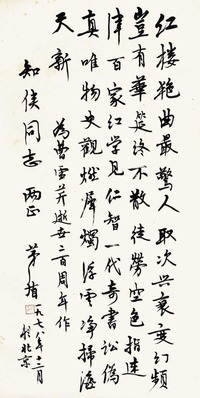 红楼艳曲最驚人取次兴衰变幻频
豈有華筵终不散徒劳空色指迷
津百家红学见仁智一代奇书讼偽
真唯物史觀燃犀烛浮雲净掃海
天新
為曹雪芹逝世二百周年作
知侠同志 两正
茅盾
一九七八年十二月
於北京